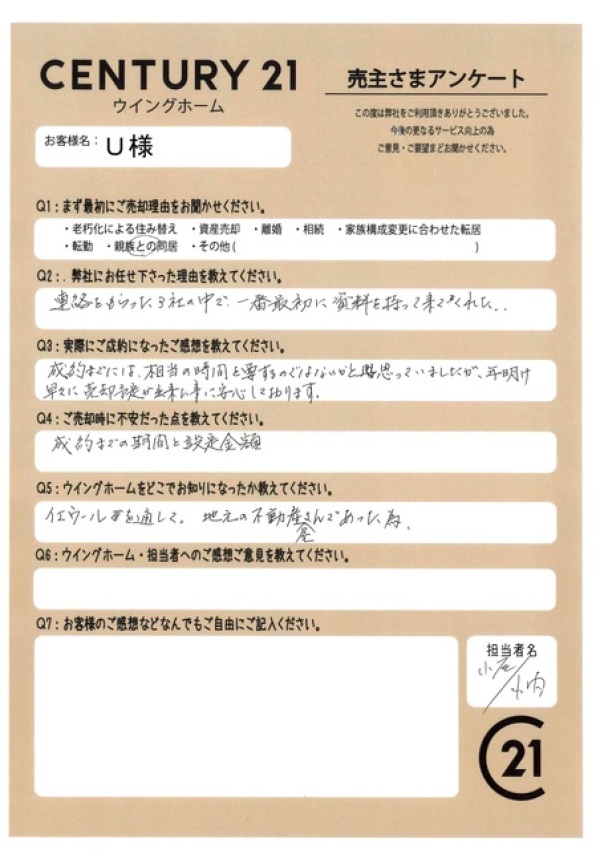 CENTURY 21
ウイングホーム
売主さまアンケート
この度は弊社をご利用頂きありがとうございました。
今後の更なるサービス向上の為
ご意見・ご要望まどお聞かせください。
お客様名: U様
Q1:まず最初にご売却理由をお聞かせください。
・老朽化による住み替え ・資産売却 ・離婚 ・相続 ・家族構成変更に合わせた転居
・転勤 ・親族との同居 ・その他( )
Q2:. 弊社にお任せ下さった理由を教えてください。
連絡をもらった3社の中で、一番最初に資料を持って来てくれた..
Q3:実際にご成約になったご感想を教えてください。
成約までには、相当の時間を要するのではないかと思っていましたが、年明け
早々に売却 出来た事に安心しております。
Q4:ご売却時に不安だった点を教えてください。
成約までの期間と設定金額
Q5:ウイングホームをどこでお知りになったか教えてください。
イエウールを通して。地元の不動産屋さんであった為、
Q6:ウイングホーム・担当者へのご感想ご意見を教えてください。
Q7:お客様のご感想などなんでもご自由にご記入ください。
担当者名
小内
C21